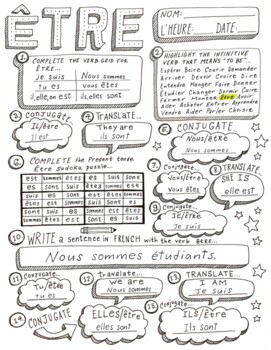 ÊTRE
NOM:
L'HEURE: DATE:
1. COMPLETE THE VERB GRID FOR ÊTRE...
je suis Nous sommes
tu es Vous êtes
il, elle, on est ils, elles sont
2. HIGHLIGHT THE INFINITIVE
VERB THAT MEANS "TO BE".
Espérer Boire Courir Demander
Arriver Devoir Croire Dire
Entendre Manger Faire Donner
Étudier Changer Dormir Cuire
Fermer Monter Être Avoir
Aller Acheter Entrer Apprendre
Vendre Aider Parler Choisir
3. CONJUGATE
Il/être
il est
4. TRANSLATE...
They are
ils sont
5. CONJUGATE
Nous/être
Nous sommes
6. COMPLETE the Present tense
Être Sudoku puzzle...
est sommes êtes es suis sont
es sont suis êtes sommes est
suis est es sont êtes sommes
sommes êtes sont suis est es
sont suis est sommes es êtes
êtes es sommes est sont suis
7. Conjugate...
Vous/être
Vous êtes
8. TRANSLATE
SHE IS
elle est
9. Conjugate...
Je/être
Je suis
10. WRITE a sentence in FRENCH with the verb ÊTRE...
Nous sommes étudiants.
11. Conjugate...
Tu/être
tu es
12. Translate...
We are
Nous sommes
13. TRANSLATE...
I AM
Je suis
14. CONJUGATE
ELLES/être
elles sont
15. Conjugate...
ILS/être
Ils sont